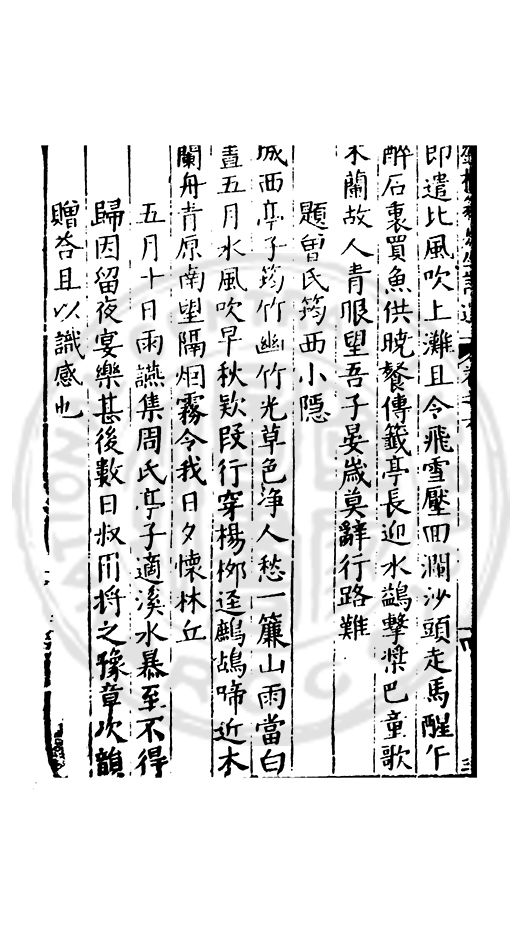 即遣比風吹上灘且令飛雪壓囬瀾沙頭走馬醒午
醉石裏買魚供晓餐傳籖亭長迎水鷁擊槳巴童歌
木蘭故人青眼望吾子晏歳莫辭行路難
題曾氏筠西小隱
城西亭子筠竹幽竹光草色净人愁一簾山雨當白
晝五月水風吹早秋欵叚行穿楊栁逕鷓鴣啼近木
蘭舟青原南望隔烟霧令我日夕懷林丘
五月十日雨讌集周氏亭子適溪水暴至不得
歸因留夜宴樂甚後數日叔用将之豫章次韻
贈荅且以識感也